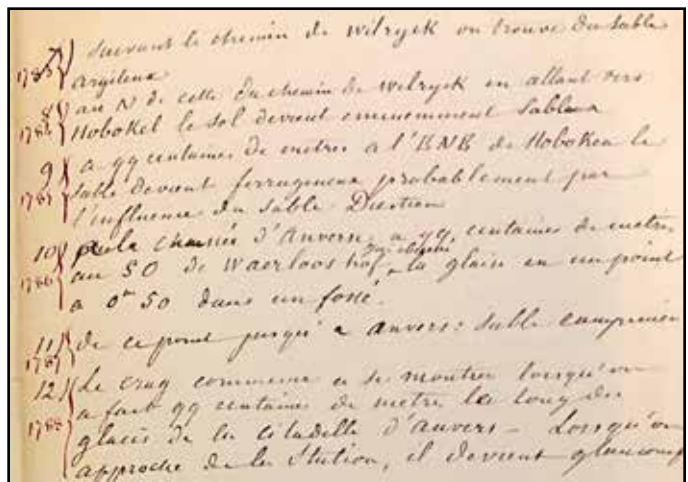 1783 7) suivant le chemin de Wilryck on trouve du sable
argileux
8) au N de cette du chemin de Wilryck en allant vers
1784 Hobokel le sol devient eminemment sableux
9) a qq centaines de metres a l'ENE de Hoboken le
1785 sable devient ferrugineux probablement par
l'influence du sable Diestien
10) la chaussée d'Anvers a qq centaines de metres
1786 au SO de Waerloos hof la glaise en un point
a 0m 50 dans un fossé.
11) de ce point jusqu'a anvers: sable campinien
1787
12) Le crag commence a se montrer lorsqu'on
a fait qq centaines de metre le long des
1788 glacis de la citadelle d'anvers - Lorsqu'on
approche de la Station, il devient